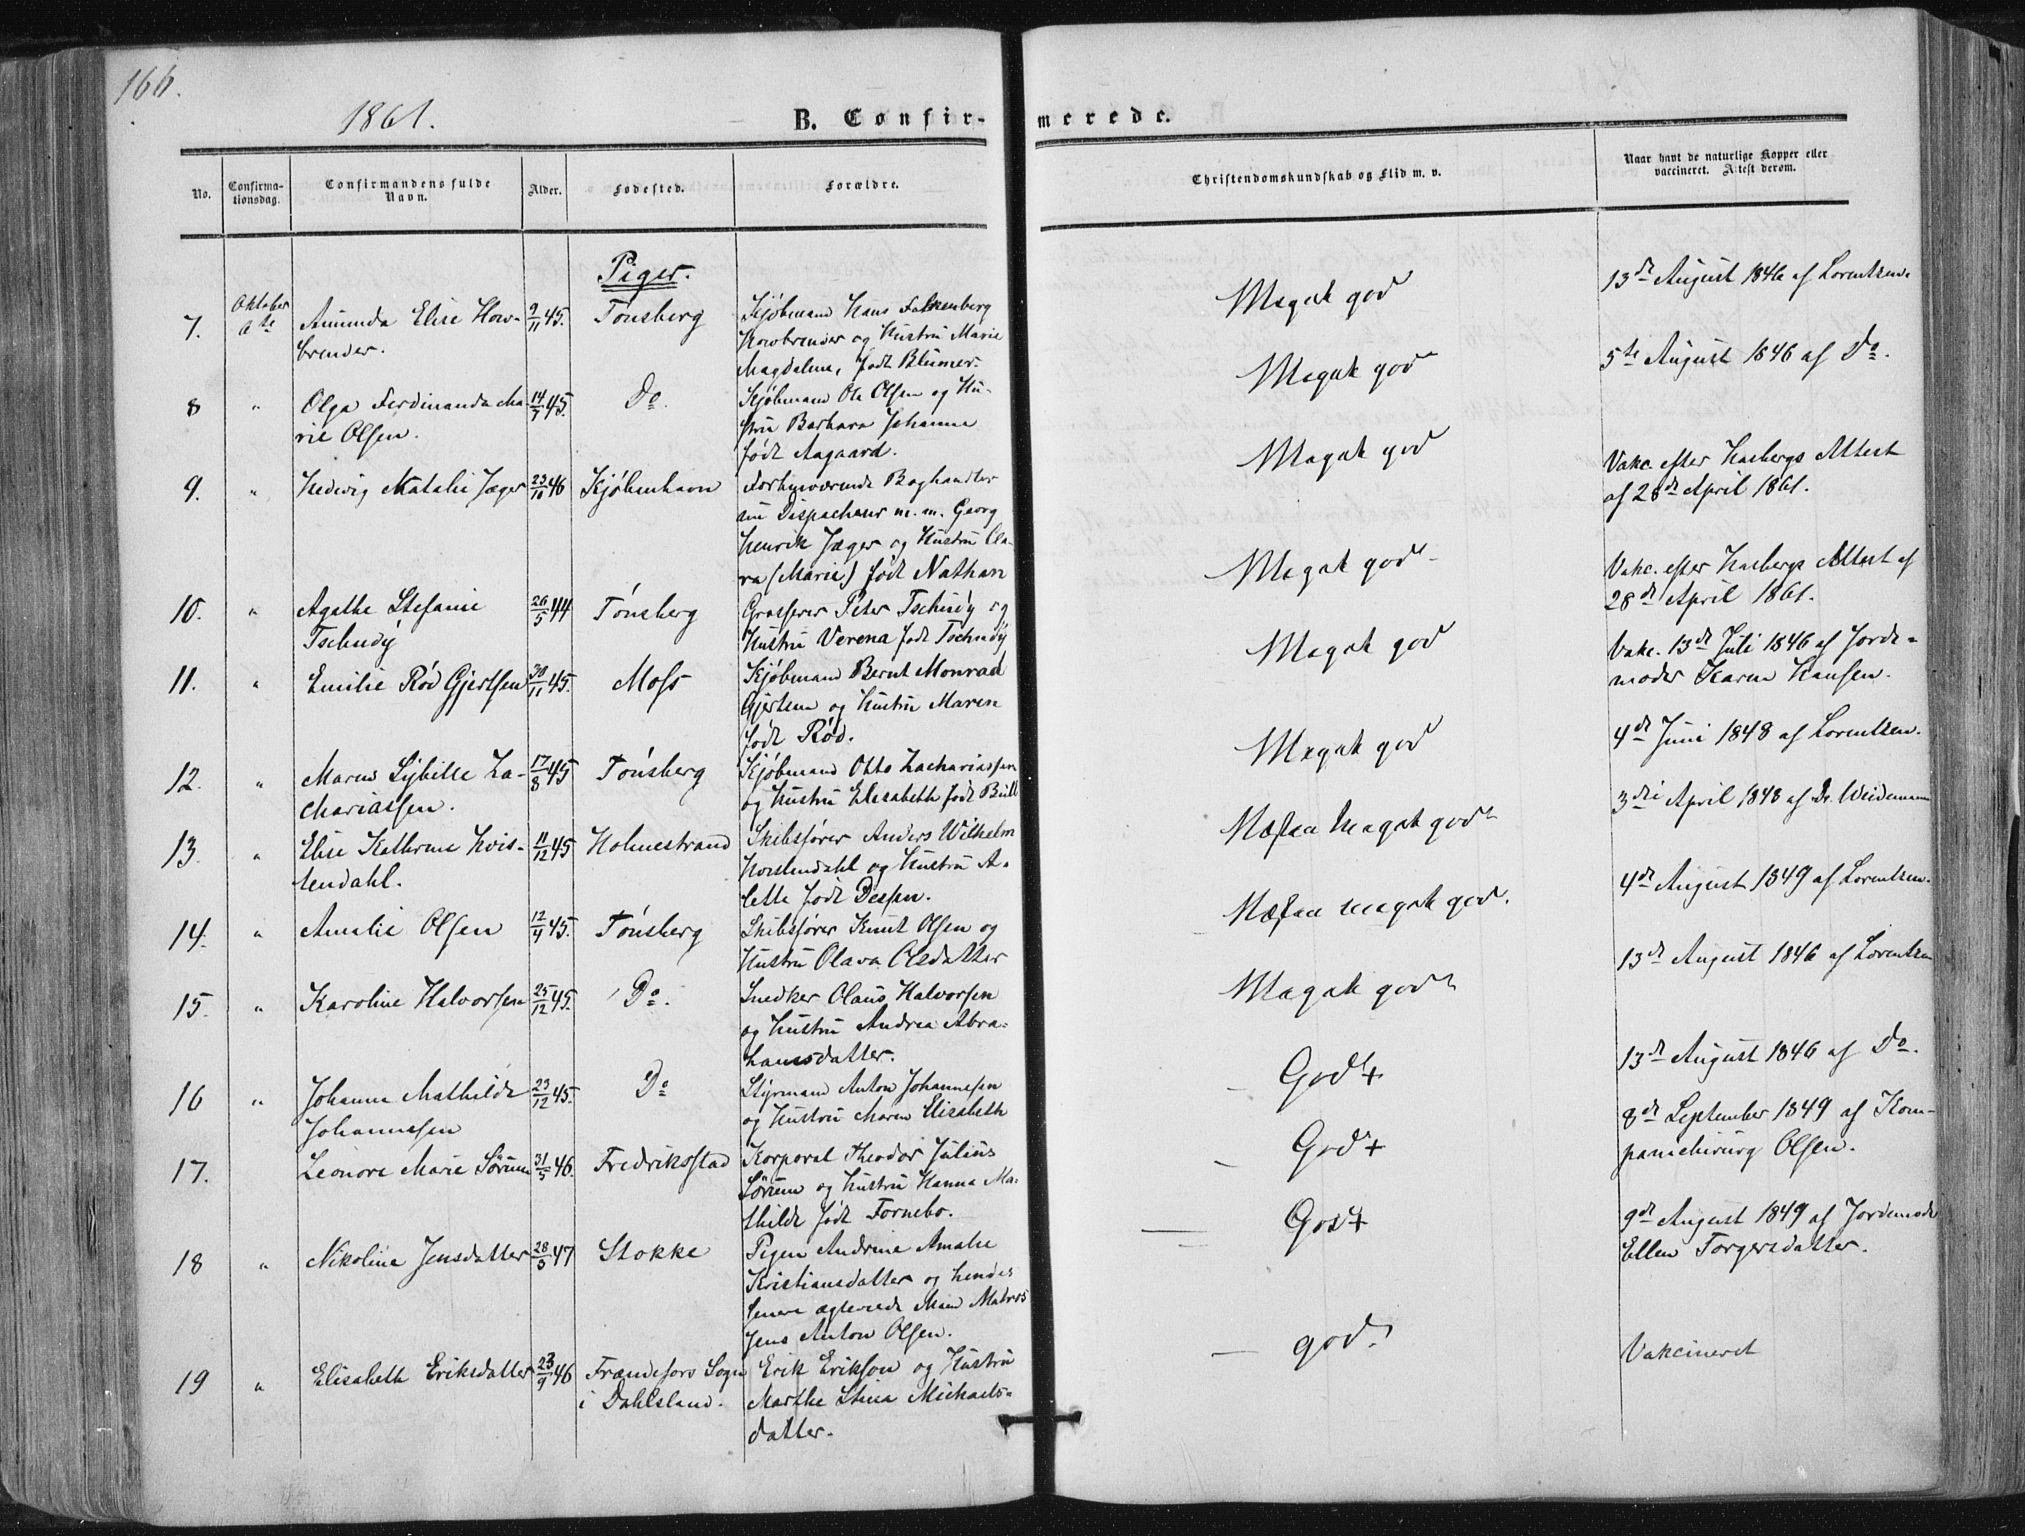 166.
1861.
B. Confir-
merede.
No.
Confirma-
tionsdag.
Confirmandens fulde
Navn.
Alder.
Fødested.
Forældre.
Christendomskundskab og Flid m. v.
Naar havt de naturlige Kopper eller
vaccineret. Attest derom.
Piger.
Oktober
6te
7.
Amunda Elise How-
brender.
9/11 45.
Tønsberg
Kjøbmand Hans Falkenberg
Howbrender og Hustru Marie
Magdalene, født Blumer.
Meget god
13de August 1846 af Lorentzen.
8
"
Olga Ferdinanda Ma-
rie Olsen.
14/7 45.
Do.
Kjøbmand Ole Olsen og Hu-
stru Barbara Johanne
født Aagaard.
Meget god
5te August 1846 af Do.
9.
"
Hedvig Natalie Jæger
23/10 46
Kjøbenhavn
Forhenværende Boghandler
nu Dispacheur m. m. Georg
Henrik Jæger og Hustru Cla-
ra (Marie) født Nathan
Meget god
Vakc. efter Attest
af 28de April 1861.
10.
"
Agathe Stefanie
Tschudy
26/5 44
Tønsberg
Grosserer Peter Tschudy og
Hustru Verena født Tschudy
Meget god
Vakc. efter Attest af
28de April 1861.
11.
"
Emilie Rød Gjertsen
30/11 45.
Moss
Kjøbmand Bernt Monrad
Gjertsen og Hustru Maren
født Rød.
Meget god
Vakc. 13de Juli 1846 af Jorde-
moder Karen Hansen.
12.
"
Maren Sybille Za-
chariassen.
17/8 45
Tønsberg
Kjøbmand Otto Zachariassen
og Hustru Elisabeth født Bull
Meget god
4de Juni 1848 af Lorentzen.
13.
"
Elise Kathrine Hois-
tendahl.
11/12 45
Holmestrand
Skibsfører Anders Wilhelm
Hoistendahl og Hustru A-
lette født
Næsten Meget god
3die April 1848 af Dr. Weidemann
14.
"
Amalie Olsen
12/9 45.
Tønsberg
Skibsfører Knut Olsen og
Hustru Olava Olsdatter
Næsten meget god.
4de August 1849 af Lorentzen.
15.
"
Karoline Halvorsen
25/12 45.
Do.
Snedker Olaus Halvorsen
og Hustru Andrea Abra-
hamsdatter.
Meget god
13de August 1846 af Lorentzen
16
"
Johanne Mathilde
Johannesen
23/12 45.
Do
Styrmand Anton Johannesen
og Hustru Maren Elisabeth
God+
13de August 1846 af Do.
17.
Leonore Marie Sørum
31/5 46.
Fredriksstad
Korporal Theodor Julius
Sørum og Hustru Hanna Ma-
thilde født Fornebo.
God+
8de September 1849 af Kom-
pamichirurg Olsen.
18
"
Nikoline Jensdatter
28/3 47
Stokke
Pigen Andrine Amalie
Kristiansdatter og hendes
senere ægteviede Man Matros
Jens Anton Olsen.
God+
9de August 1849 af Jordemoder
Ellen Torgersdatter.
19
"
Elisabeth Eriksdatter
23/9 46
Frændefors Sogn
i Dahlsland.
Erik Erikson og Hustru
Marthe Stina Michaels-
datter.
god
Vakcineret